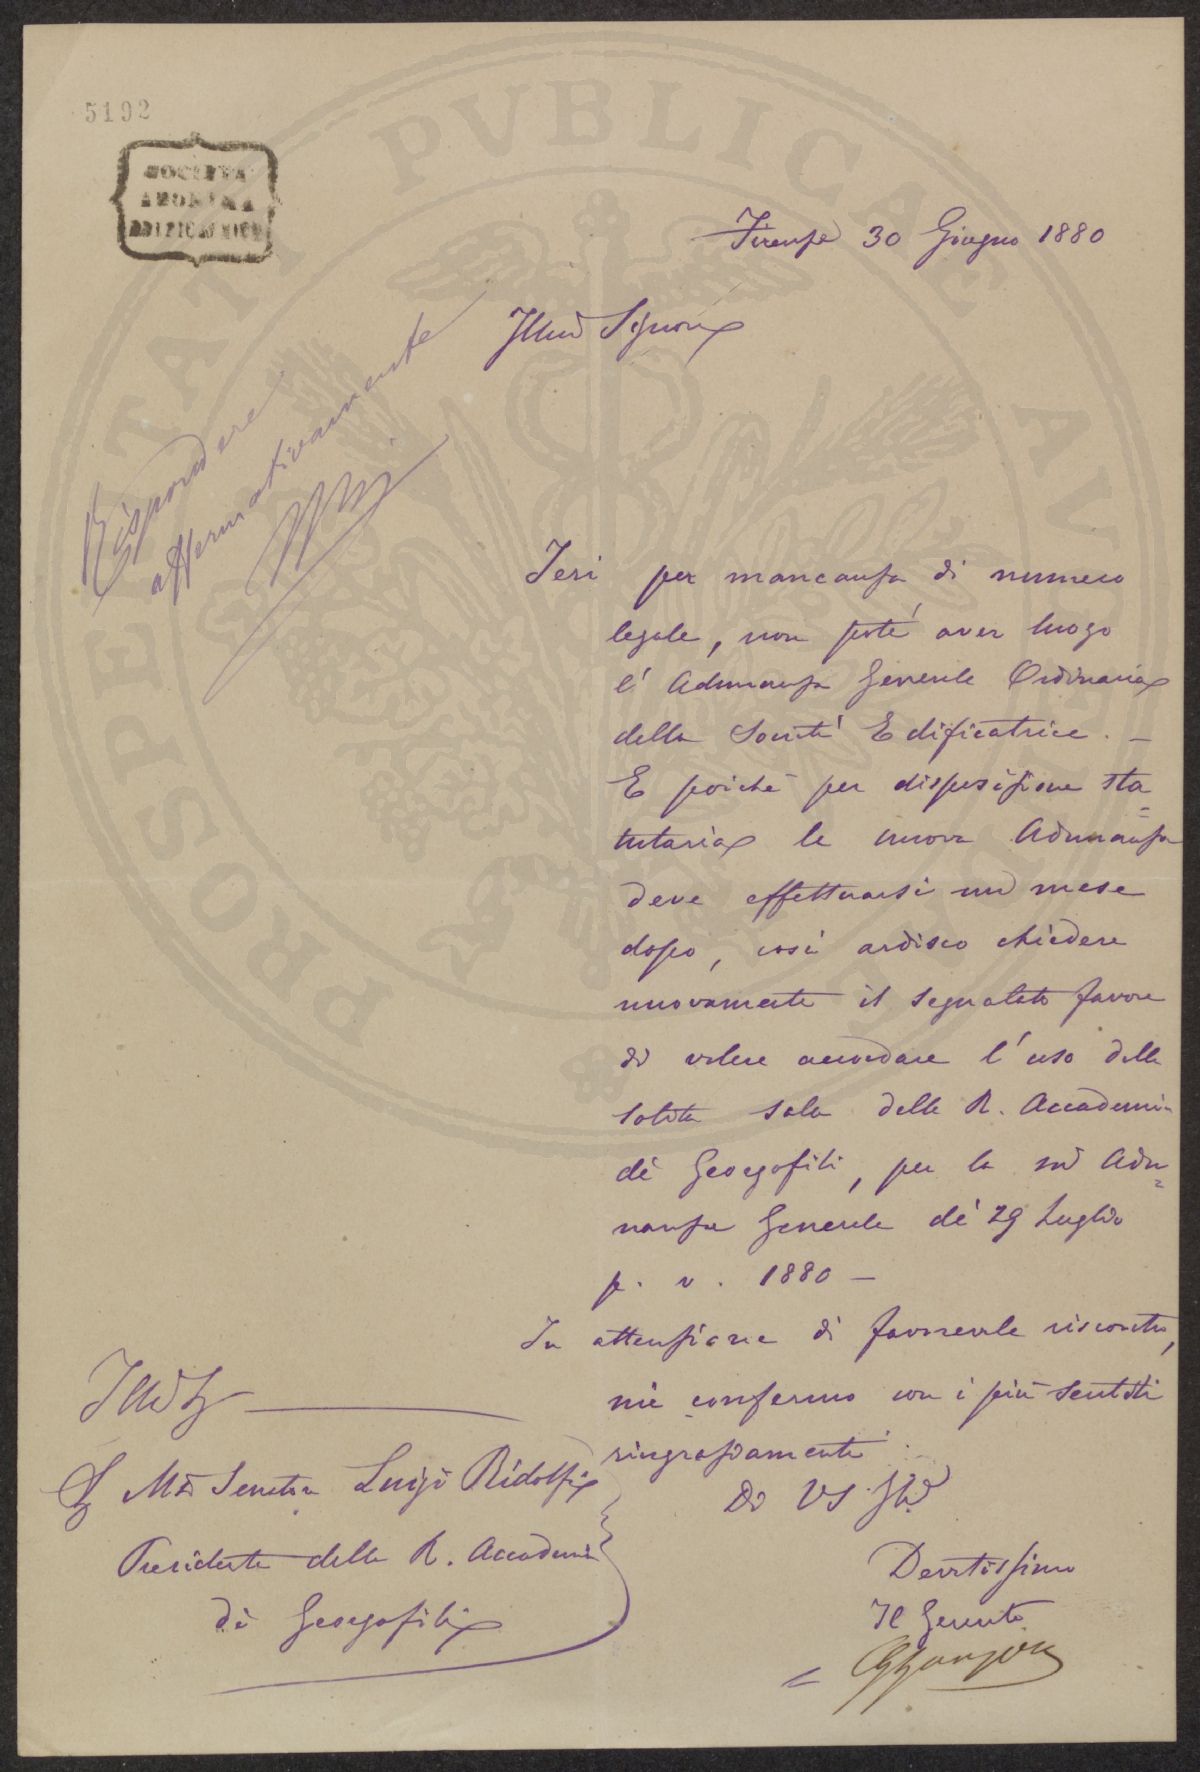 5192
SOCIETA
ANONIMA
EDIFICATRICE
PROSPERITATI PUBLICAE AUGENDAE
Firenze 30 Giugno 1880
Illmo Signore
Rispondere
affermativamente
Ieri per mancanza di numero
legale, non poté aver luogo
l'Adunanza Generale Ordinaria
della Società Edificatrice. —
E poiché per disposizione sta=
tutaria la nuova Adunanza
deve effettuarsi un mese
dopo, così ardisco chiedere
nuovamente il segnalato favore
di volere accordare l'uso della
solita sala della R. Accademia
dei Georgofili, per la sud Adu=
nanza Generale de' 29 Luglio
p. v. 1880 —
In attenzione di favorevole riscontro,
mi confermo con i più sentiti
ringraziamenti
Di VS Illma
Devotissimo
Il Gerente
Illmo Sig
Sig Mse Senatore Luigi Ridolfi
Presidente della R. Accademia
di Georgofili